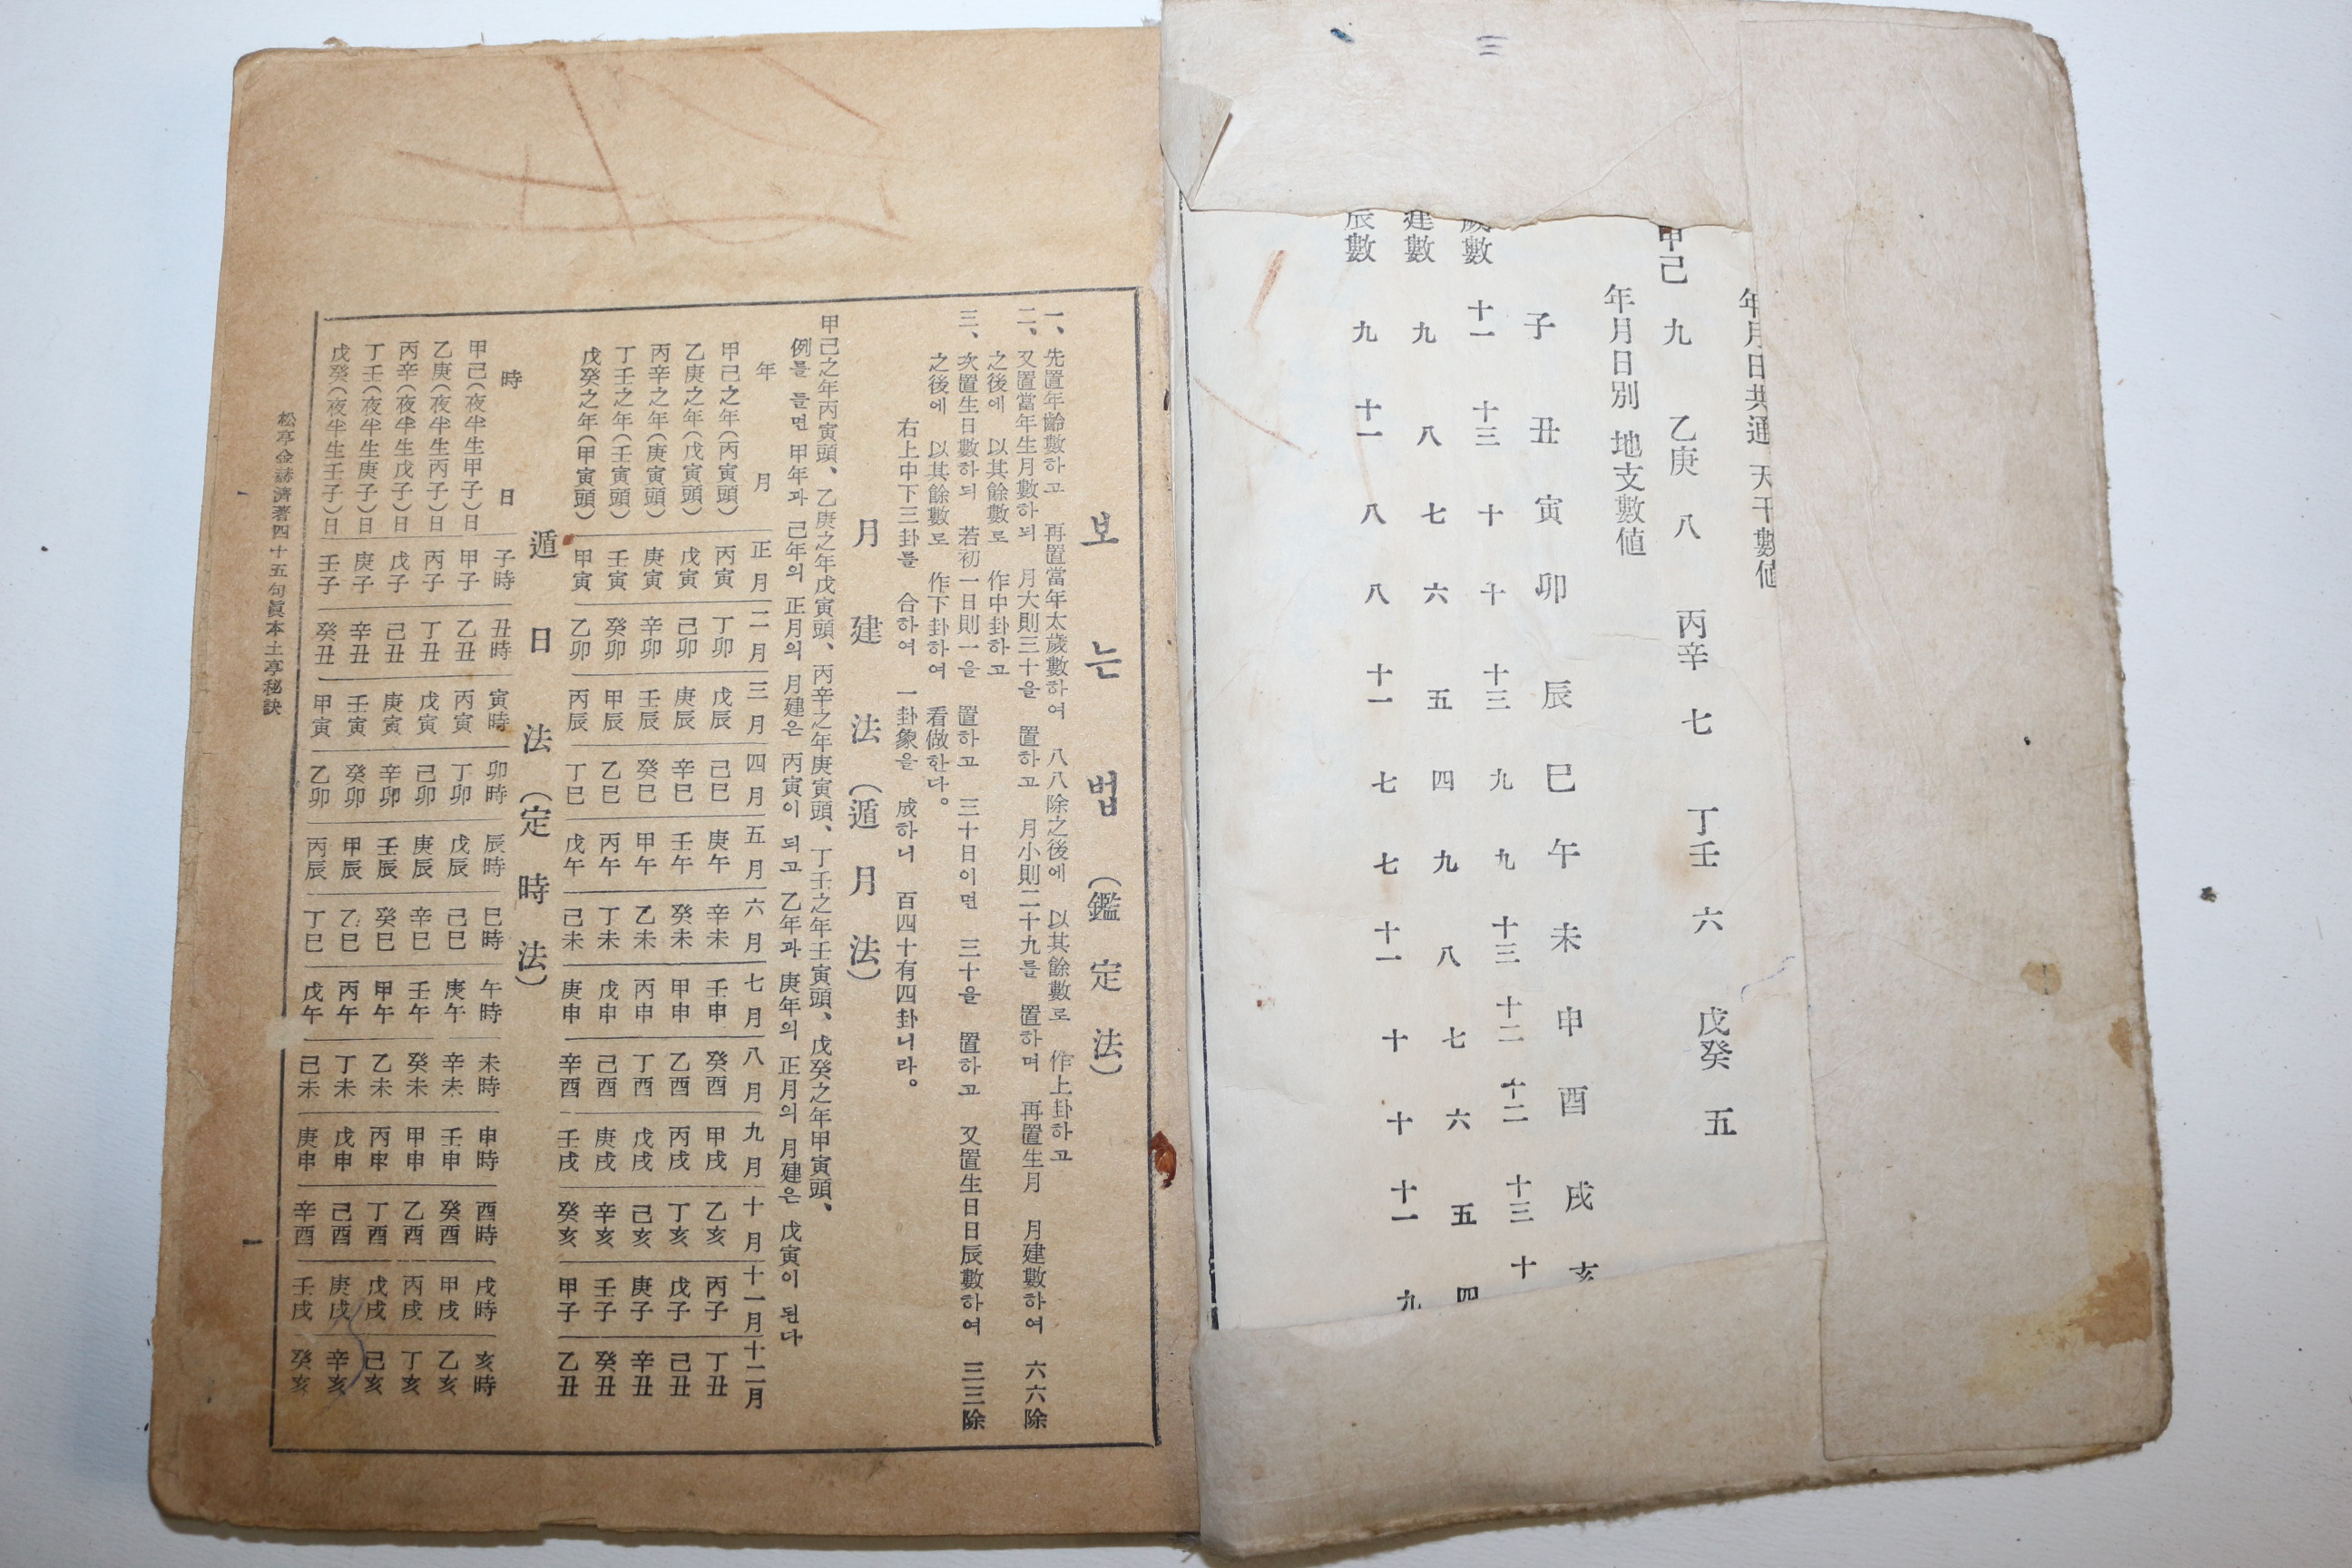 三
年月日共通 天干數値
甲己 九 乙庚 八 丙辛 七 丁壬 六 戊癸 五
年月日別 地支數値
子 丑 寅 卯 辰 巳 午 未 申 酉 戌 亥
歲數 十一 十三 十 十 十三 九 九 十三 十二 十二 十三 十
建數 九 八 七 六 五 四 九 八 七 六 五 四
辰數 九 十一 八 八 十一 七 七 十一 十 十 十一 九
보는법 (鑑定法)
一、先置年齡數하고 再置當年太歲數하여 八八除之後에 以其餘數로 作上卦하고
二、又置當年生月數하되 月大則三十을 置하고 月小則二十九를 置하며 再置生月 月建數하여 六六除
之後에 以其餘數로 作中卦하고
三、次置生日數하되 若初一日則一을 置하고 三十日이면 三十을 置하고 又置生日日辰數하여 三三除
之後에 以其餘數로 作下卦하여 看做한다。
右上中下三卦를 合하여 一卦象을 成하니 百四十有四卦니라。
月建法 (遁月法)
甲己之年丙寅頭、乙庚之年戊寅頭、丙辛之年庚寅頭、丁壬之年壬寅頭、戊癸之年甲寅頭、
例를 들면 甲年과 己年의 正月의 月建은 丙寅이 되고 乙年과 庚年의 正月의 月建은 戊寅이 된다
年 月 正月 二月 三月 四月 五月 六月 七月 八月 九月 十月 十一月 十二月
甲己之年(丙寅頭) 丙寅 丁卯 戊辰 己巳 庚午 辛未 壬申 癸酉 甲戌 乙亥 丙子 丁丑
乙庚之年(戊寅頭) 戊寅 己卯 庚辰 辛巳 壬午 癸未 甲申 乙酉 丙戌 丁亥 戊子 己丑
丙辛之年(庚寅頭) 庚寅 辛卯 壬辰 癸巳 甲午 乙未 丙申 丁酉 戊戌 己亥 庚子 辛丑
丁壬之年(壬寅頭) 壬寅 癸卯 甲辰 乙巳 丙午 丁未 戊申 己酉 庚戌 辛亥 壬子 癸丑
戊癸之年(甲寅頭) 甲寅 乙卯 丙辰 丁巳 戊午 己未 庚申 辛酉 壬戌 癸亥 甲子 乙丑
遁日法 (定時法)
時 日 子時 丑時 寅時 卯時 辰時 巳時 午時 未時 申時 酉時 戌時 亥時
甲己(夜半生甲子)日 甲子 乙丑 丙寅 丁卯 戊辰 己巳 庚午 辛未 壬申 癸酉 甲戌 乙亥
乙庚(夜半生丙子)日 丙子 丁丑 戊寅 己卯 庚辰 辛巳 壬午 癸未 甲申 乙酉 丙戌 丁亥
丙辛(夜半生戊子)日 戊子 己丑 庚寅 辛卯 壬辰 癸巳 甲午 乙未 丙申 丁酉 戊戌 己亥
丁壬(夜半生庚子)日 庚子 辛丑 壬寅 癸卯 甲辰 乙巳 丙午 丁未 戊申 己酉 庚戌 辛亥
戊癸(夜半生壬子)日 壬子 癸丑 甲寅 乙卯 丙辰 丁巳 戊午 己未 庚申 辛酉 壬戌 癸亥
松亭金赫濟著四十五句眞本土亭秘訣
一